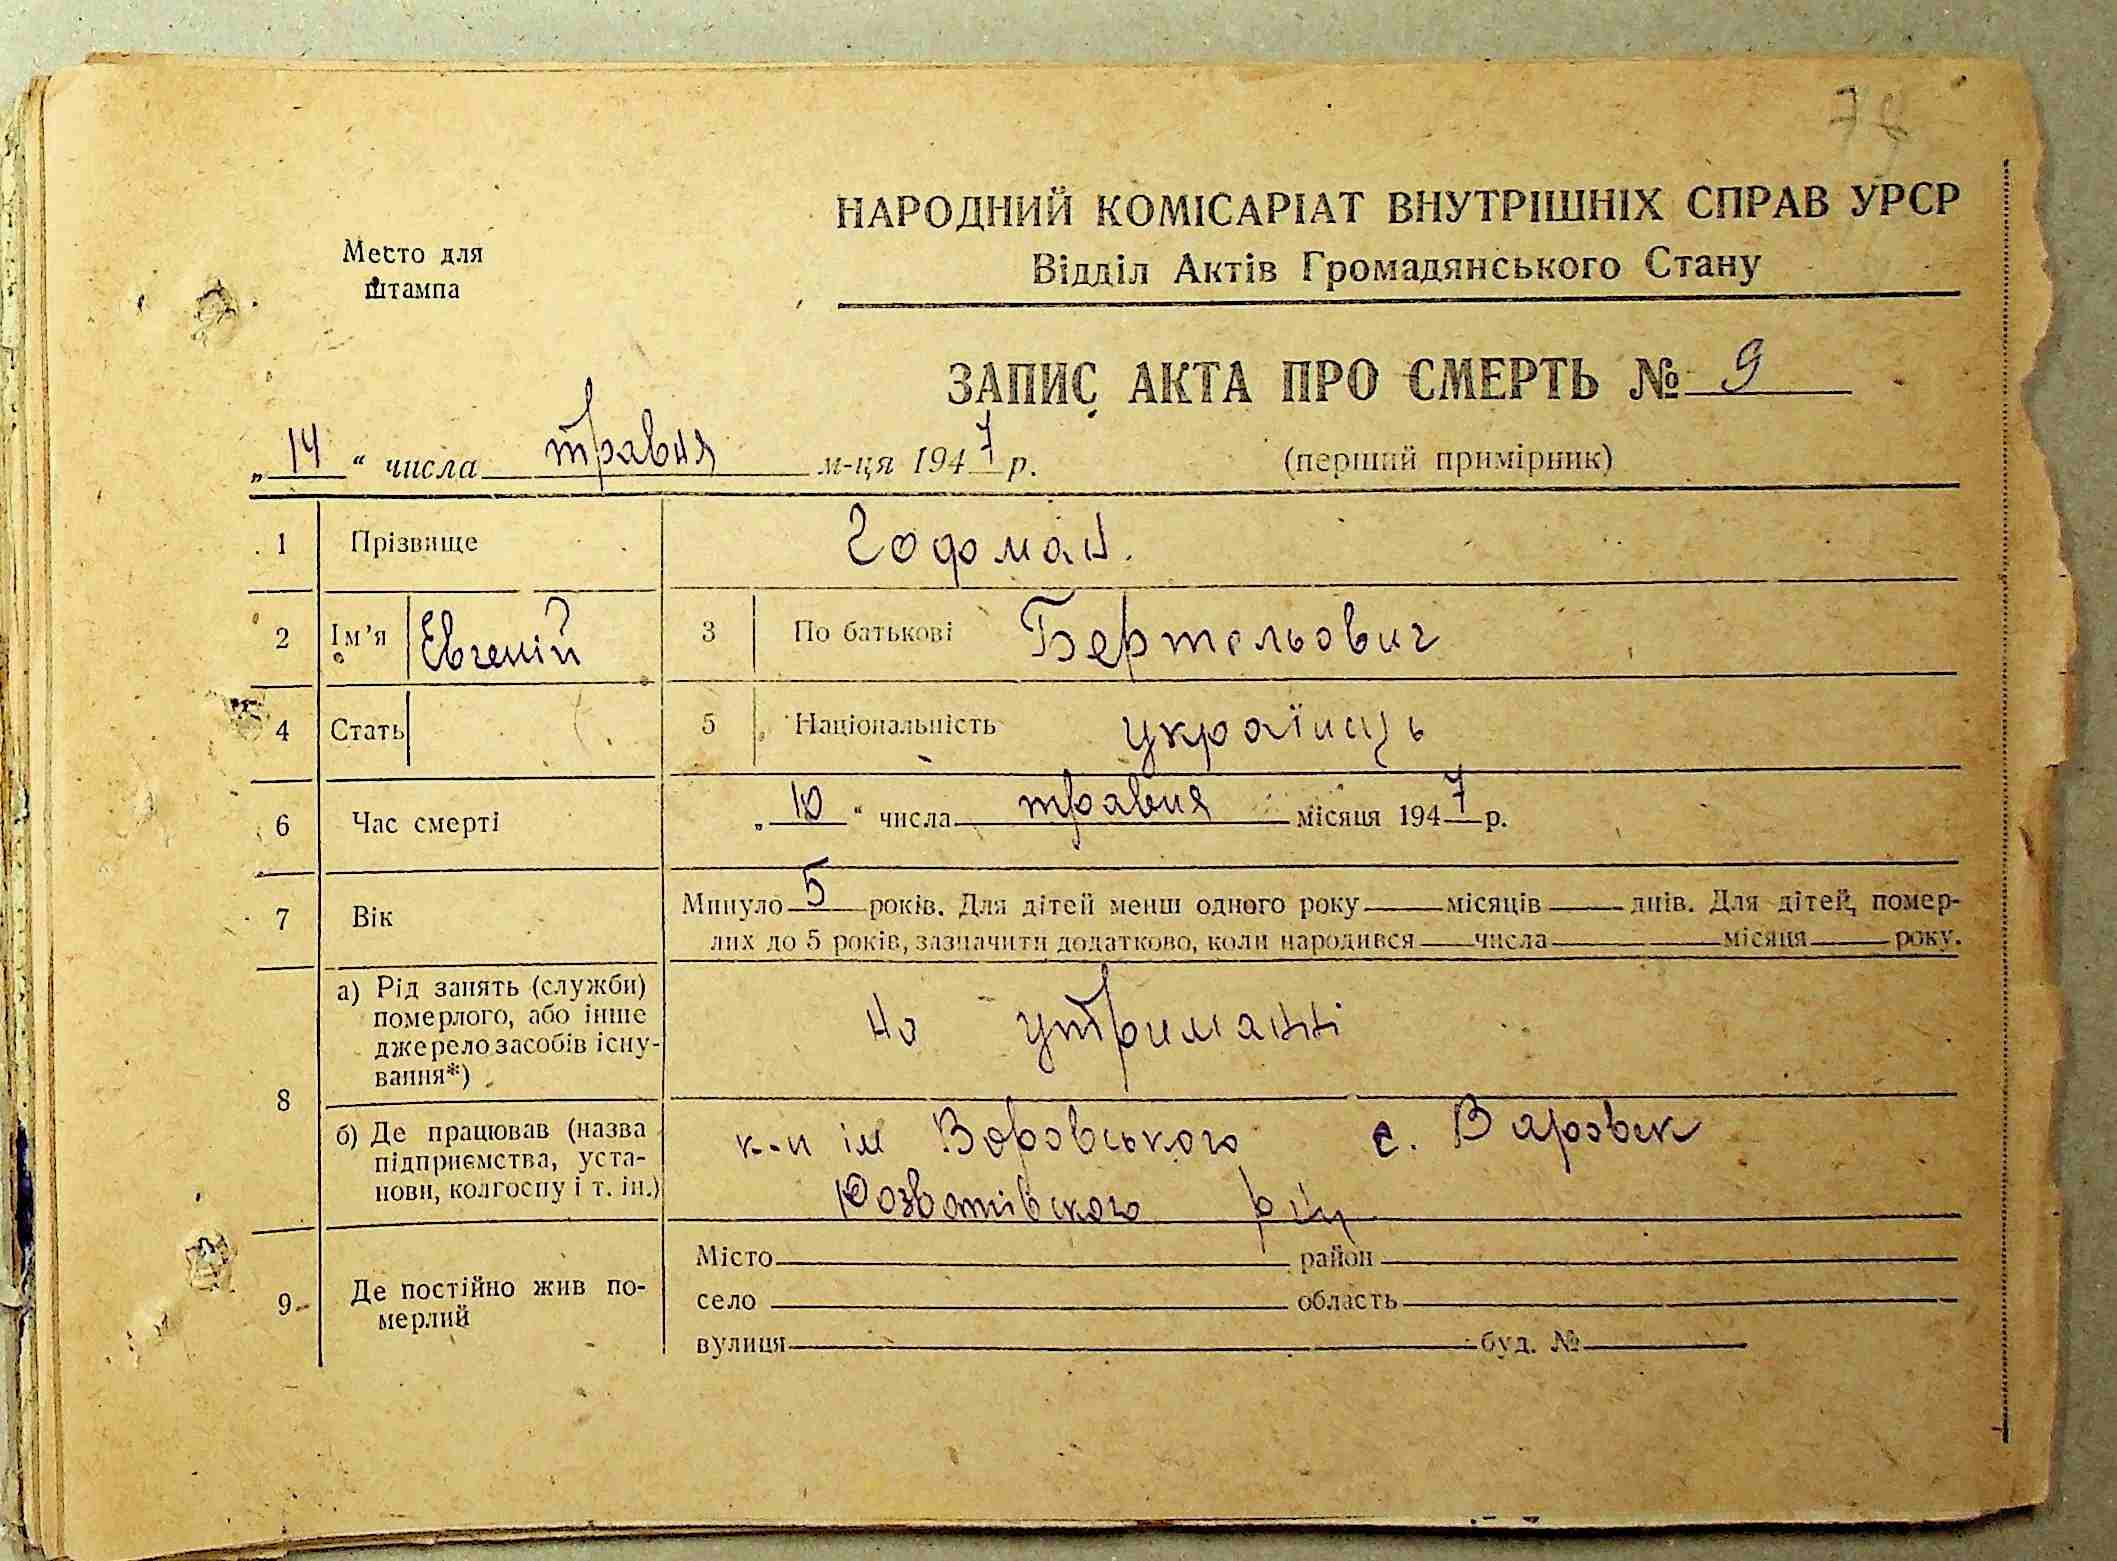 НАРОДНИЙ КОМІСАРІАТ ВНУТРІШНІХ СПРАВ УРСР
Відділ Актів Громадянського Стану
Место для
штампа
ЗАПИС АКТА ПРО СМЕРТЬ № 9
„14“ числа травня м-ця 1947 р.
(перший примірник)
1 Прізвище Гофман.
2 Ім'я Евгеній 3 По батькові Бертельович
4 Стать 5 Національність українець
6 Час смерті „10“ числа травня місяця 1947 р.
7 Вік Минуло 5 років. Для дітей менш одного року місяців днів. Для дітей, помер-
лих до 5 років, зазначити додатково, коли народився числа місяця року.
8 а) Рід занять (служби)
померлого, або інше
джерело засобів існу-
вання*)
на утриманні
б) Де працював (назва
підприємства, уста-
нови, колгоспу і т. ін.)
к-п ім Воровського с.
9 Де постійно жив по-
мерлий
Місто район
село область
вулиця буд. №